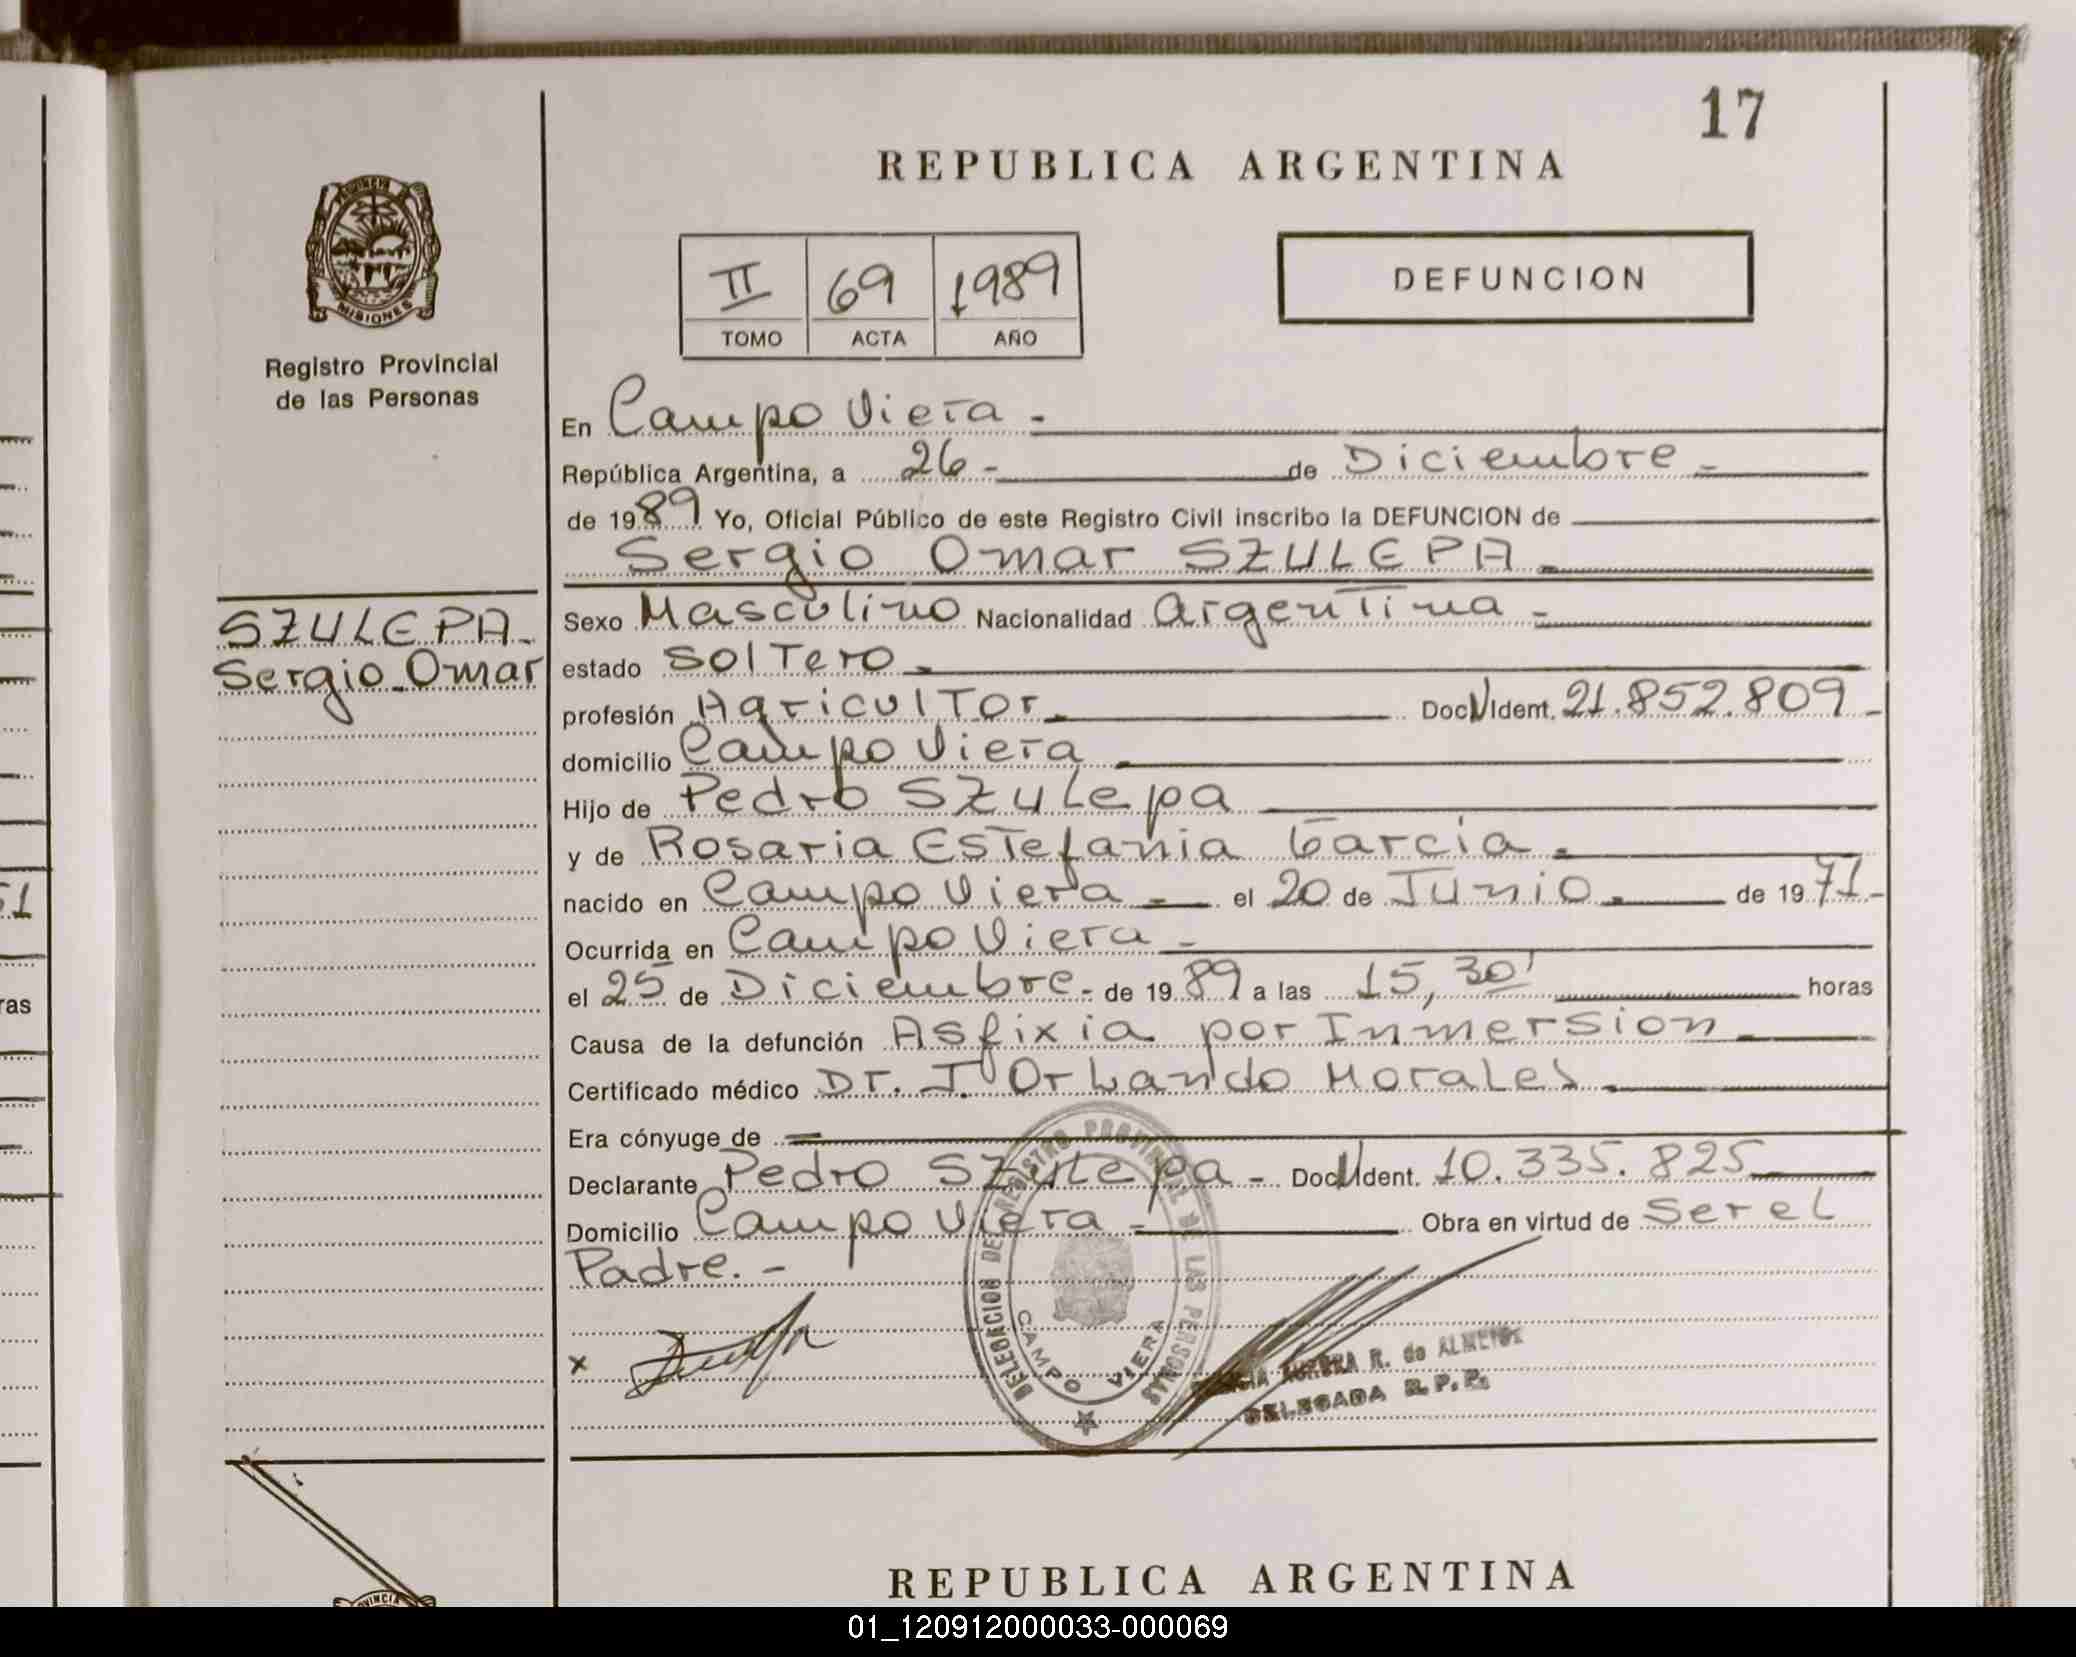 17
REPUBLICA ARGENTINA
PROVINCIA D
MISIONES
Registro Provincial
de las Personas
II 69 1989
TOMO ACTA AÑO
DEFUNCION
En Campo Viera -
República Argentina, a 26 - de Diciembre -
de 1989 Yo, Oficial Público de este Registro Civil inscribo la DEFUNCION de
Sergio Omar SZULEPA -
SZULEPA -
Sergio Omar
Sexo Masculino Nacionalidad Argentina -
estado Soltero -
profesión Agricultor - Doc N Ident. 21.852.809 -
domicilio Campo Viera -
Hijo de Pedro SZulepa
y de Rosaria Estefania Garcia -
nacido en Campo Viera - el 20 de Junio - de 1971 -
Ocurrida en Campo Viera -
el 25 de Diciembre - de 1989 a las 15,30' horas
Causa de la defunción Asfixia por Inmersion -
Certificado médico Dr. J. Orlando Morales -
Era cónyuge de =
Declarante Pedro SZulepa - Doc N Ident. 10.335.825
Domicilio Campo Viera - Obra en virtud de Ser el
Padre. -
x
DELEGACION DEL REGISTRO PROVINCIAL DE LAS PERSONAS
CAMPO VIERA
R. de ALMEIDA
DELEGADA R.P.P.
51
ras
REPUBLICA ARGENTINA
OVINCIA
01_120912000033-000069